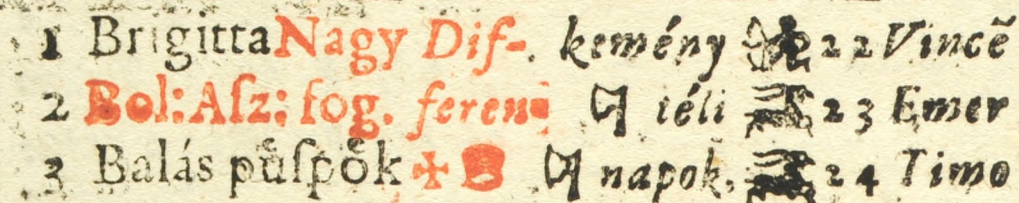 1 Brigitta Nagy Diſ-. kemény 22 Vincẽ
2 Bol: Aſz: fog. feren téli 23 Emer
3 Balás puͤſpoͤk ✠ napok. 24 Timo